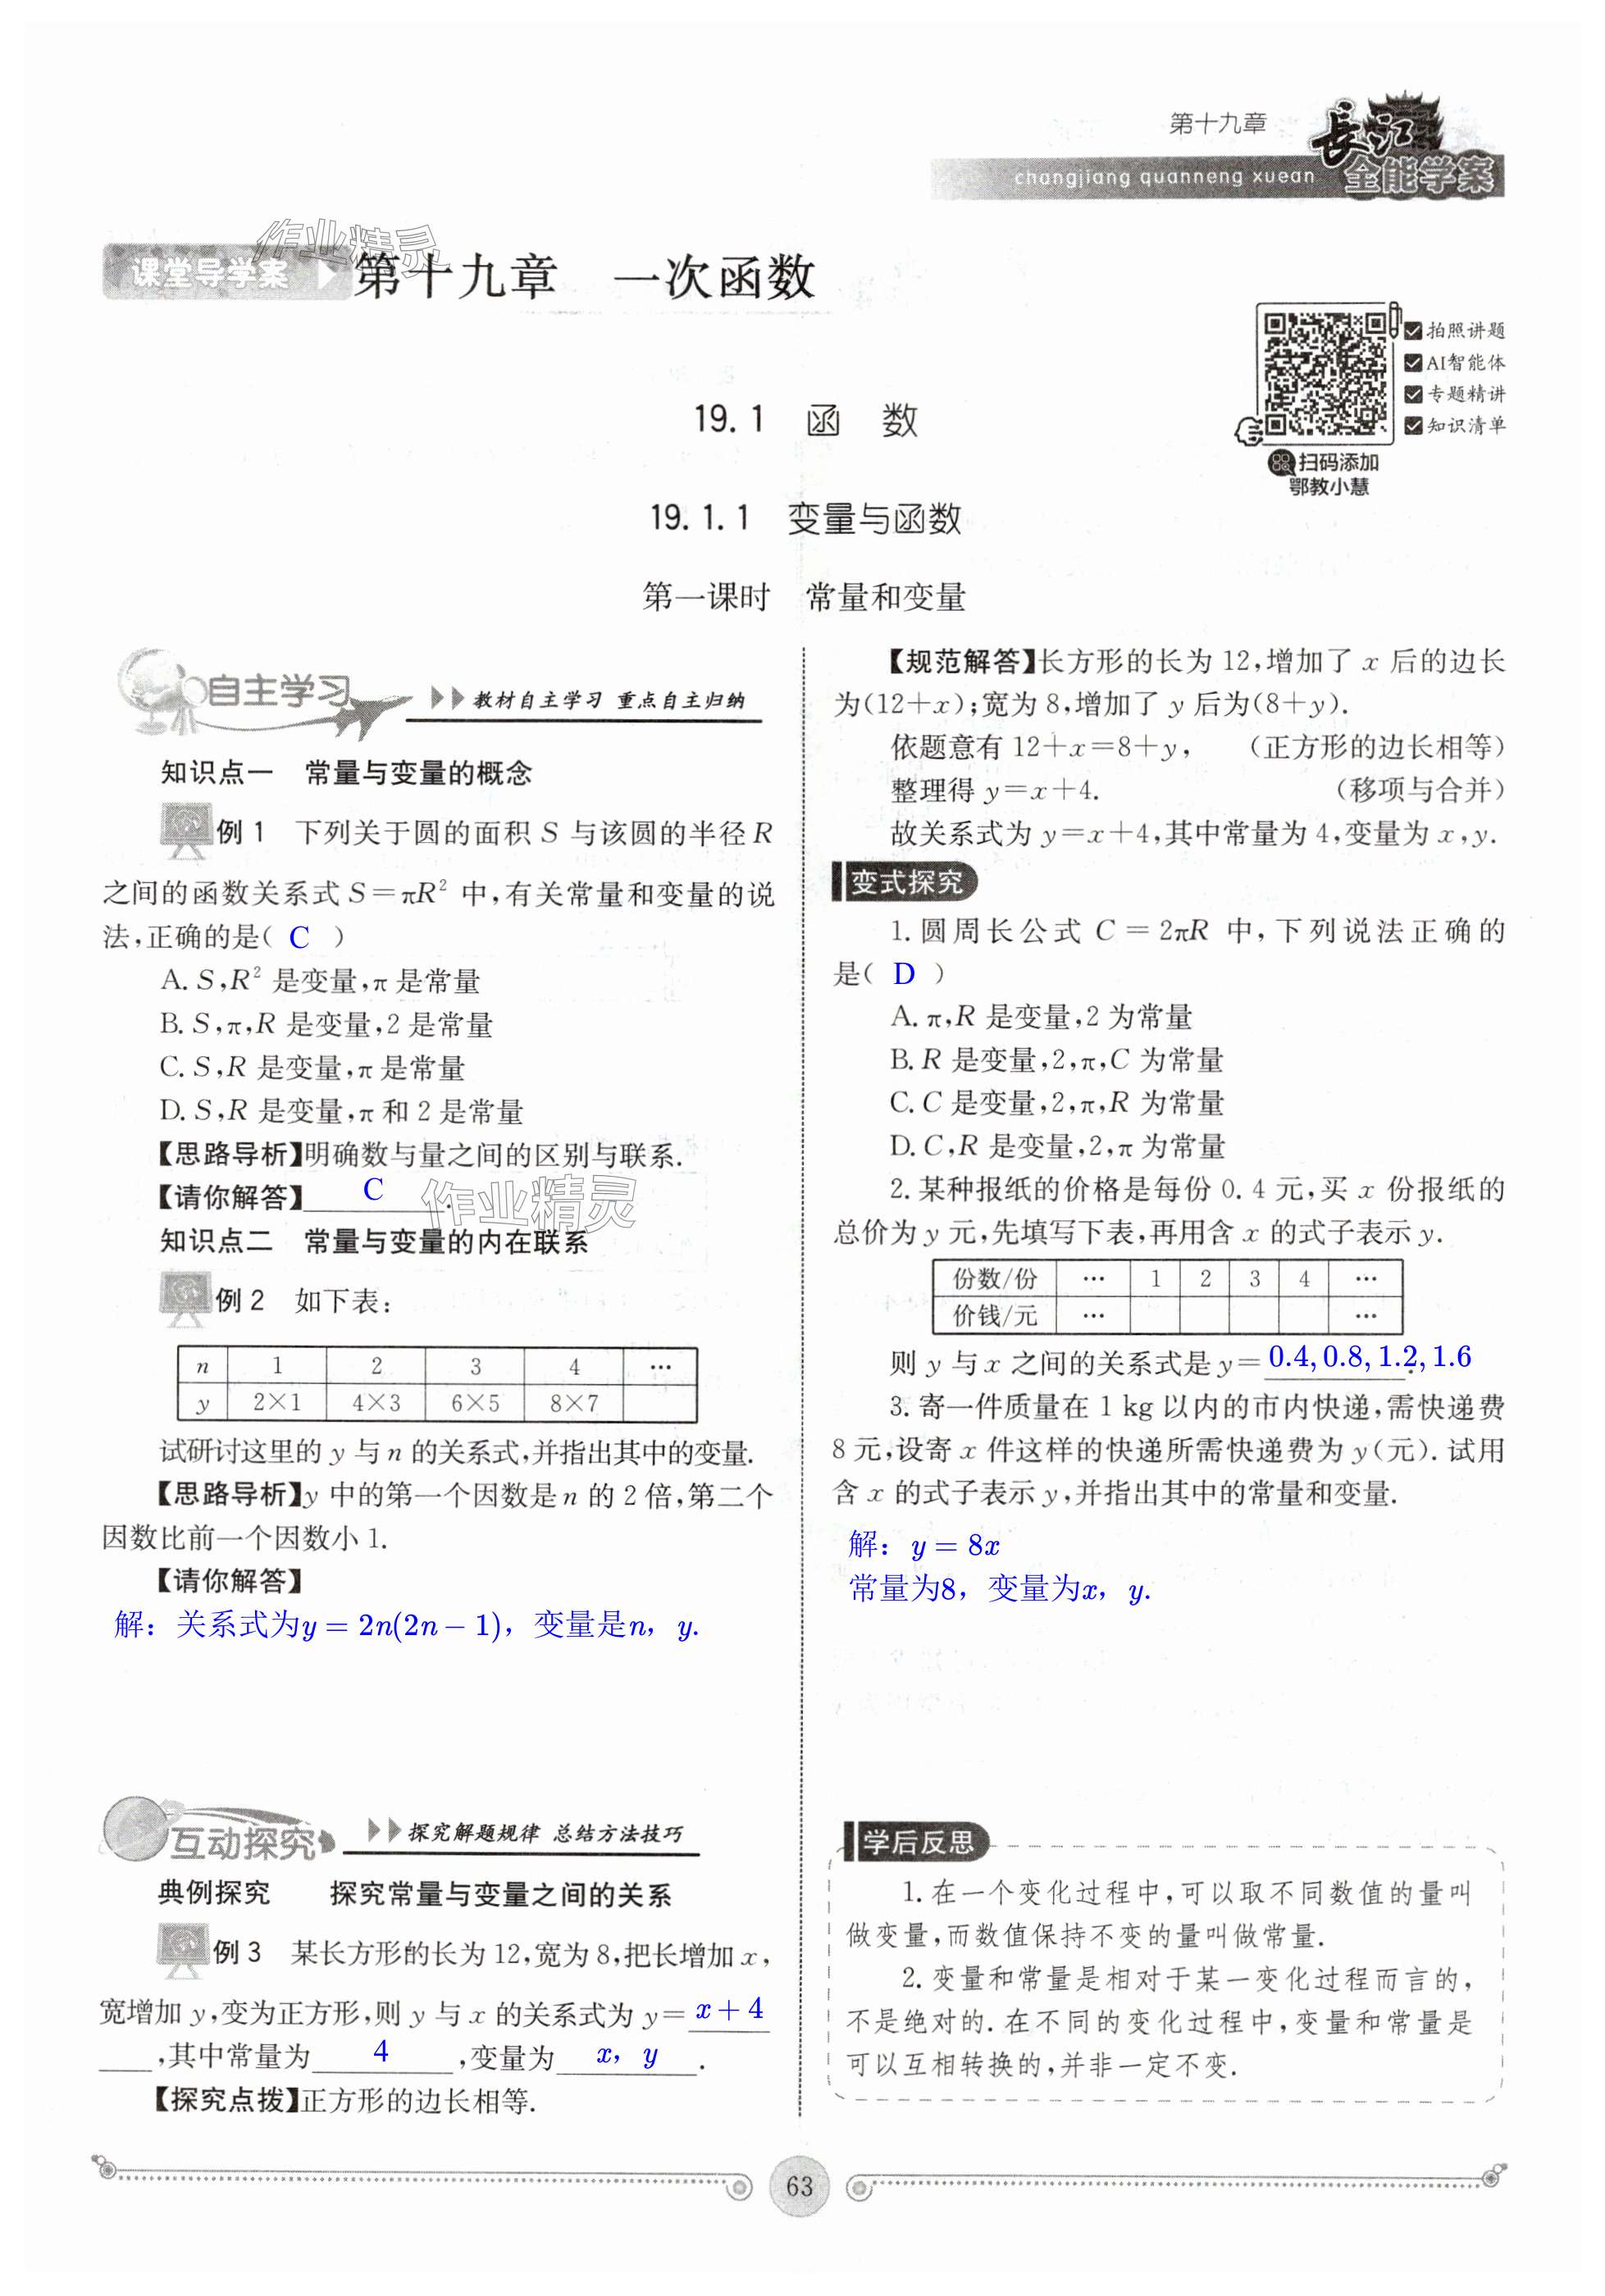 第十九章
長江
全能学案
changjiang quanneng xuean
作业精灵
课堂导学案
第十九章 一次函数
拍照讲题
AI智能体
专题精讲
知识清单
扫码添加
鄂教小慧
19.1 函 数
19.1.1 变量与函数
第一课时 常量和变量
自主学习 教材自主学习 重点自主归纳
知识点一 常量与变量的概念
例1 下列关于圆的面积 S 与该圆的半径 R
之间的函数关系式 S=πR² 中,有关常量和变量的说
法,正确的是( C )
A. S,R² 是变量,π 是常量
B. S,π,R 是变量,2 是常量
C. S,R 是变量,π 是常量
D. S,R 是变量,π 和 2 是常量
【思路导析】明确数与量之间的区别与联系.
【请你解答】 C .
作业精灵
知识点二 常量与变量的内在联系
例2 如下表:
n 1 2 3 4 …
y 2×1 4×3 6×5 8×7
试研讨这里的 y 与 n 的关系式,并指出其中的变量.
【思路导析】y 中的第一个因数是 n 的 2 倍,第二个
因数比前一个因数小 1.
【请你解答】
解：关系式为y = 2n(2n − 1)，变量是n，y.
互动探究 探究解题规律 总结方法技巧
典例探究 探究常量与变量之间的关系
例3 某长方形的长为 12,宽为 8,把长增加 x,
宽增加 y,变为正方形,则 y 与 x 的关系式为 y= x + 4
,其中常量为 4 ,变量为 x，y .
【探究点拨】正方形的边长相等.
【规范解答】长方形的长为 12,增加了 x 后的边长
为(12+x);宽为 8,增加了 y 后为(8+y).
依题意有 12+x=8+y, (正方形的边长相等)
整理得 y=x+4. (移项与合并)
故关系式为 y=x+4,其中常量为 4,变量为 x,y.
变式探究
1. 圆周长公式 C = 2πR 中,下列说法正确的
是( D )
A. π,R 是变量,2 为常量
B. R 是变量,2,π,C 为常量
C. C 是变量,2,π,R 为常量
D. C,R 是变量,2,π 为常量
2. 某种报纸的价格是每份 0.4 元,买 x 份报纸的
总价为 y 元,先填写下表,再用含 x 的式子表示 y.
份数/份 … 1 2 3 4 …
价钱/元 … …
则 y 与 x 之间的关系式是 y= 0.4, 0.8, 1.2, 1.6 .
3. 寄一件质量在 1 kg 以内的市内快递,需快递费
8 元,设寄 x 件这样的快递所需快递费为 y(元). 试用
含 x 的式子表示 y,并指出其中的常量和变量.
解：y = 8x
常量为8，变量为x，y.
学后反思
1. 在一个变化过程中,可以取不同数值的量叫
做变量,而数值保持不变的量叫做常量.
2. 变量和常量是相对于某一变化过程而言的,
不是绝对的. 在不同的变化过程中,变量和常量是
可以互相转换的,并非一定不变.
63